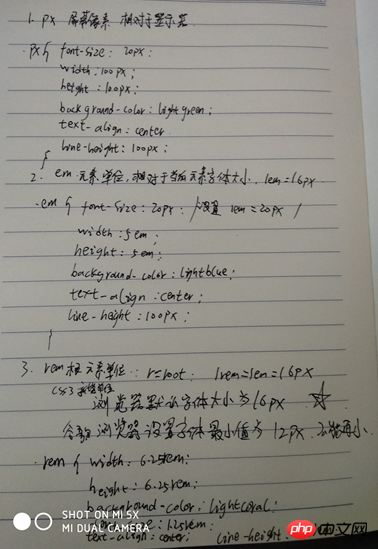 1. px 屏幕像素 相对于显示器
.px{ font-size: 20px;
width: 100px;
height: 100px;
background-color: lightgreen;
text-align: center
line-height: 100px;
}
2. em 元素单位, 相对于当前元素字体大小. 1em=16px
.em{ font-size: 20px; /设置 1em=20px /
width: 5em;
height: 5em;
background-color: lightblue;
text-align: center;
line-height: 100px;
}
3. rem 根元素单位: r=root: 1rem=1em=16px
css3 单位
浏览器默认字体大小为16px ☆
谷歌浏览器设置字体最小值为12px. 不能再小
.rem{ width: 6.25rem;
height: 6.25rem;
background-color: lightcoral;
1.25rem;
text-align: center; line-height:
SHOT ON MI 5X
MI DUAL CAMERA
php 中文网